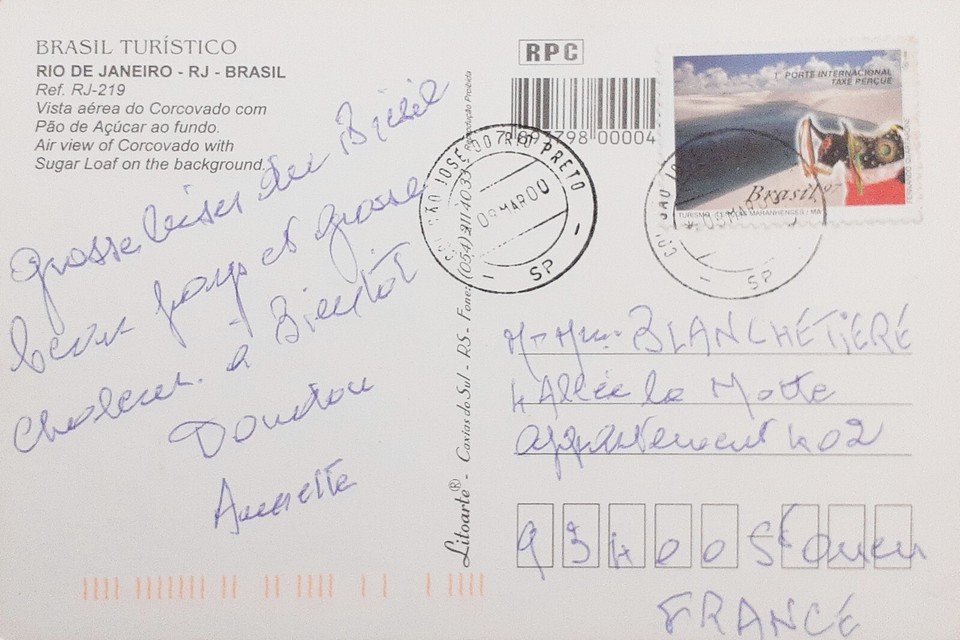 BRASIL TURÍSTICO
RIO DE JANEIRO - RJ - BRASIL
Ref. RJ-219
Vista aérea do Corcovado com
Pão de Açúcar ao fundo.
Air view of Corcovado with
Sugar Loaf on the background.
Grosse bises du Brésil
beau pays et grosse
chaleur. à Bientôt
Doudou
Annette
Litoarte® - Caxias do Sul - RS - Fone: (054)
Reprodução Proibida
RPC
7 897798 00004
1º PORTE INTERNACIONAL
TAXE PERÇUE
Brasil 97
TURISMO - LENÇÓIS MARANHENSES / MA
SÃO JOSÉ DO RIO PRETO
08 MAR 00
SP
SÃO JO
SP
Mr Mme BLANCHÉTIÈRE
4 Allée la Motte
appartement 402
93400 St Ouen
FRANCE